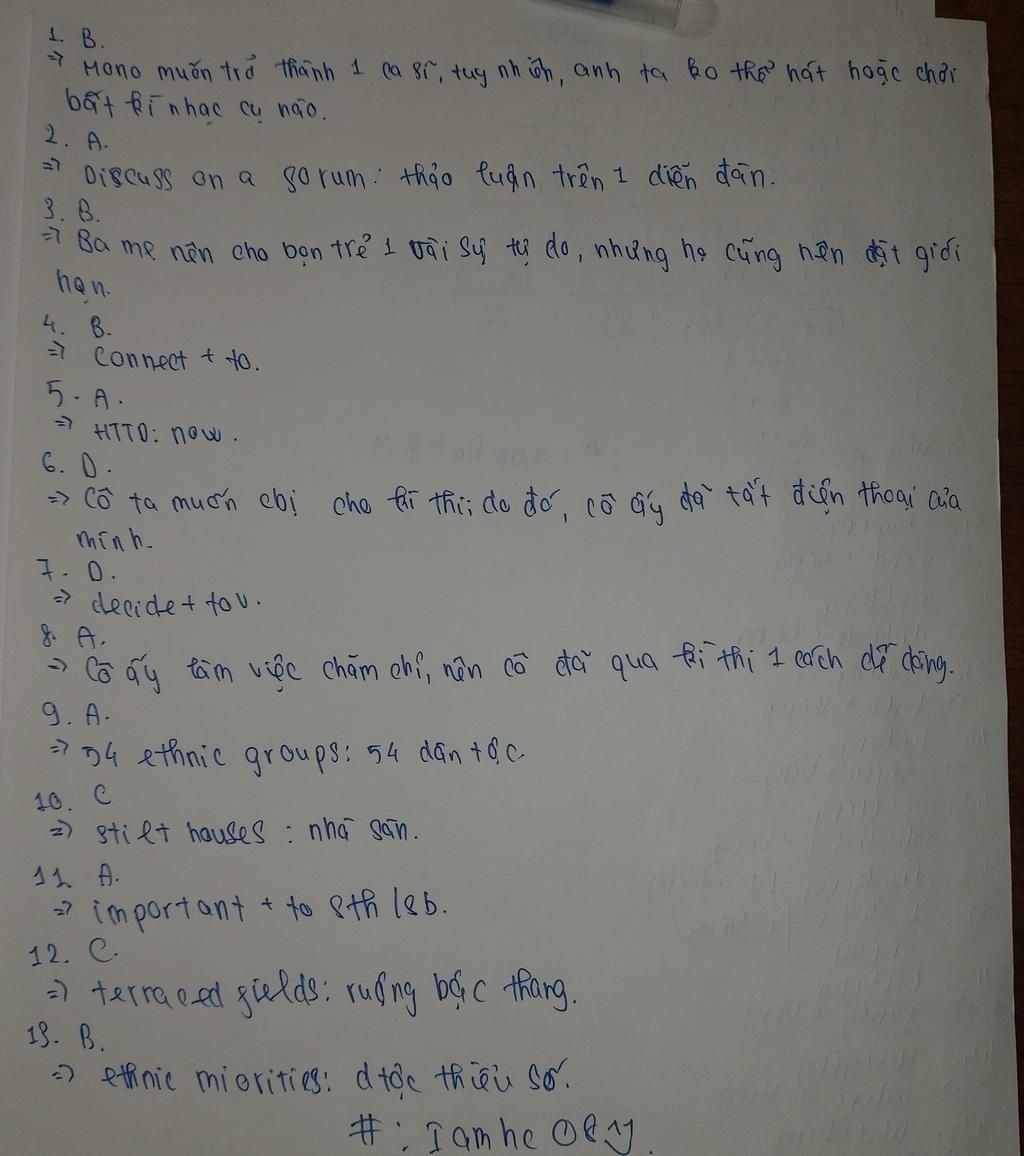 1. B.
=> Mono muốn trở thành 1 ca sĩ, tuy nhiên, anh ta ko thể hát hoặc chơi
bất kì nhạc cụ nào.
2. A.
=> Discuss on a forum: thảo luận trên 1 diễn đàn.
3. B.
=> Ba mẹ nên cho bọn trẻ 1 vài sự tự do, nhưng họ cũng nên đặt giới
hạn.
4. B.
=> Connect + to.
5. A.
=> HTTD: now.
6. D.
=> Cô ta muốn cbị cho kì thi; do đó, cô ấy đã tắt điện thoại của
mình.
7. D.
=> decide + to V.
8. A.
=> Cô ấy làm việc chăm chỉ, nên cô đã qua kì thi 1 cách dễ dàng.
9. A.
=> 54 ethnic groups: 54 dân tộc
10. C
=> stilt houses : nhà sàn.
11. A.
=> important + to sth/sb.
12. C.
=> terraced fields: ruộng bậc thang.
13. B.
=> ethnic miorities: dtộc thiểu số.
# : Iamhc